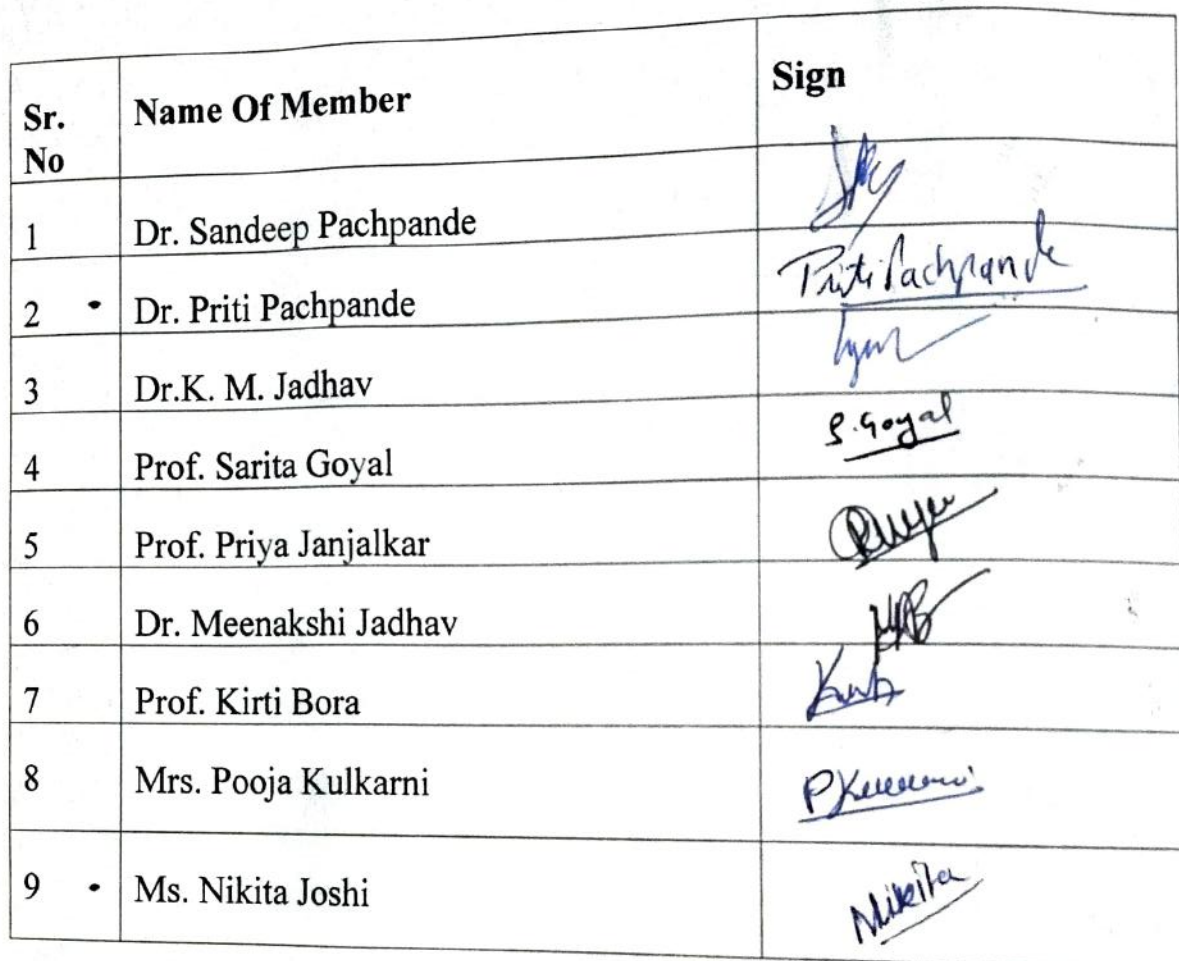 Sr. No Name Of Member Sign
1 Dr. Sandeep Pachpande
2 Dr. Priti Pachpande Priti Pachpande
3 Dr.K. M. Jadhav
4 Prof. Sarita Goyal S.Goyal
5 Prof. Priya Janjalkar
6 Dr. Meenakshi Jadhav
7 Prof. Kirti Bora
8 Mrs. Pooja Kulkarni
9 Ms. Nikita Joshi Nikita